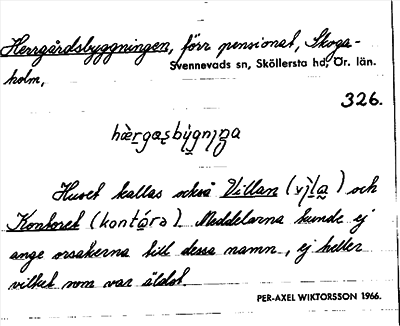 Herrgårdsbyggningen, förr pensionat, Skoga-
Svennevads sn, Sköllersta hd, Ör. län.
holm,
326.
hæ̀rgaʂbýgnıŋa
Huset kallas också Villan (vı̀la) och
Kontoret (kontórə). Meddelarna kunde ej
ange orsakerna till dessa namn, ej heller
vilket som var äldst.
PER-AXEL WIKTORSSON 1966.